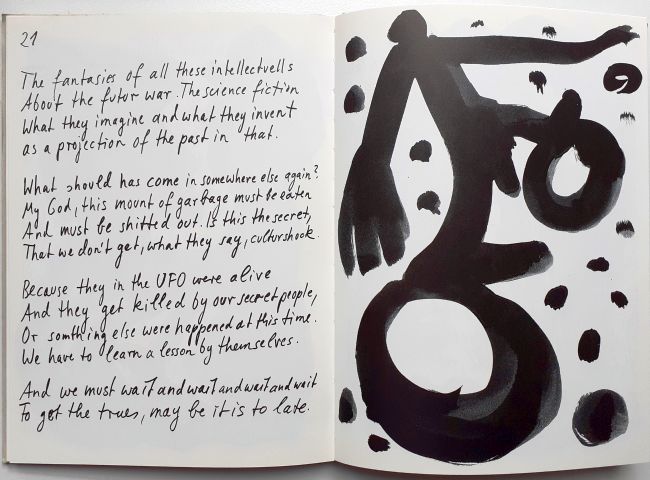 21
The fantasies of all these intellectuells
About the futur war. The science fiction
What they imagine and what they invent
as a projection of the past in that.
What should has come in somewhere else again?
My God, this mount of garbage must be eaten
And must be shitted out. Is this the secret,
That we don't get, what they say, culturshook.
Because they in the UFO were alive
And they get killed by our secret people,
Or somthing else were happened at this time.
We have to learn a lesson by themselves.
And we must wait and wait and wait and wait
To get the trues, may be it is to late.